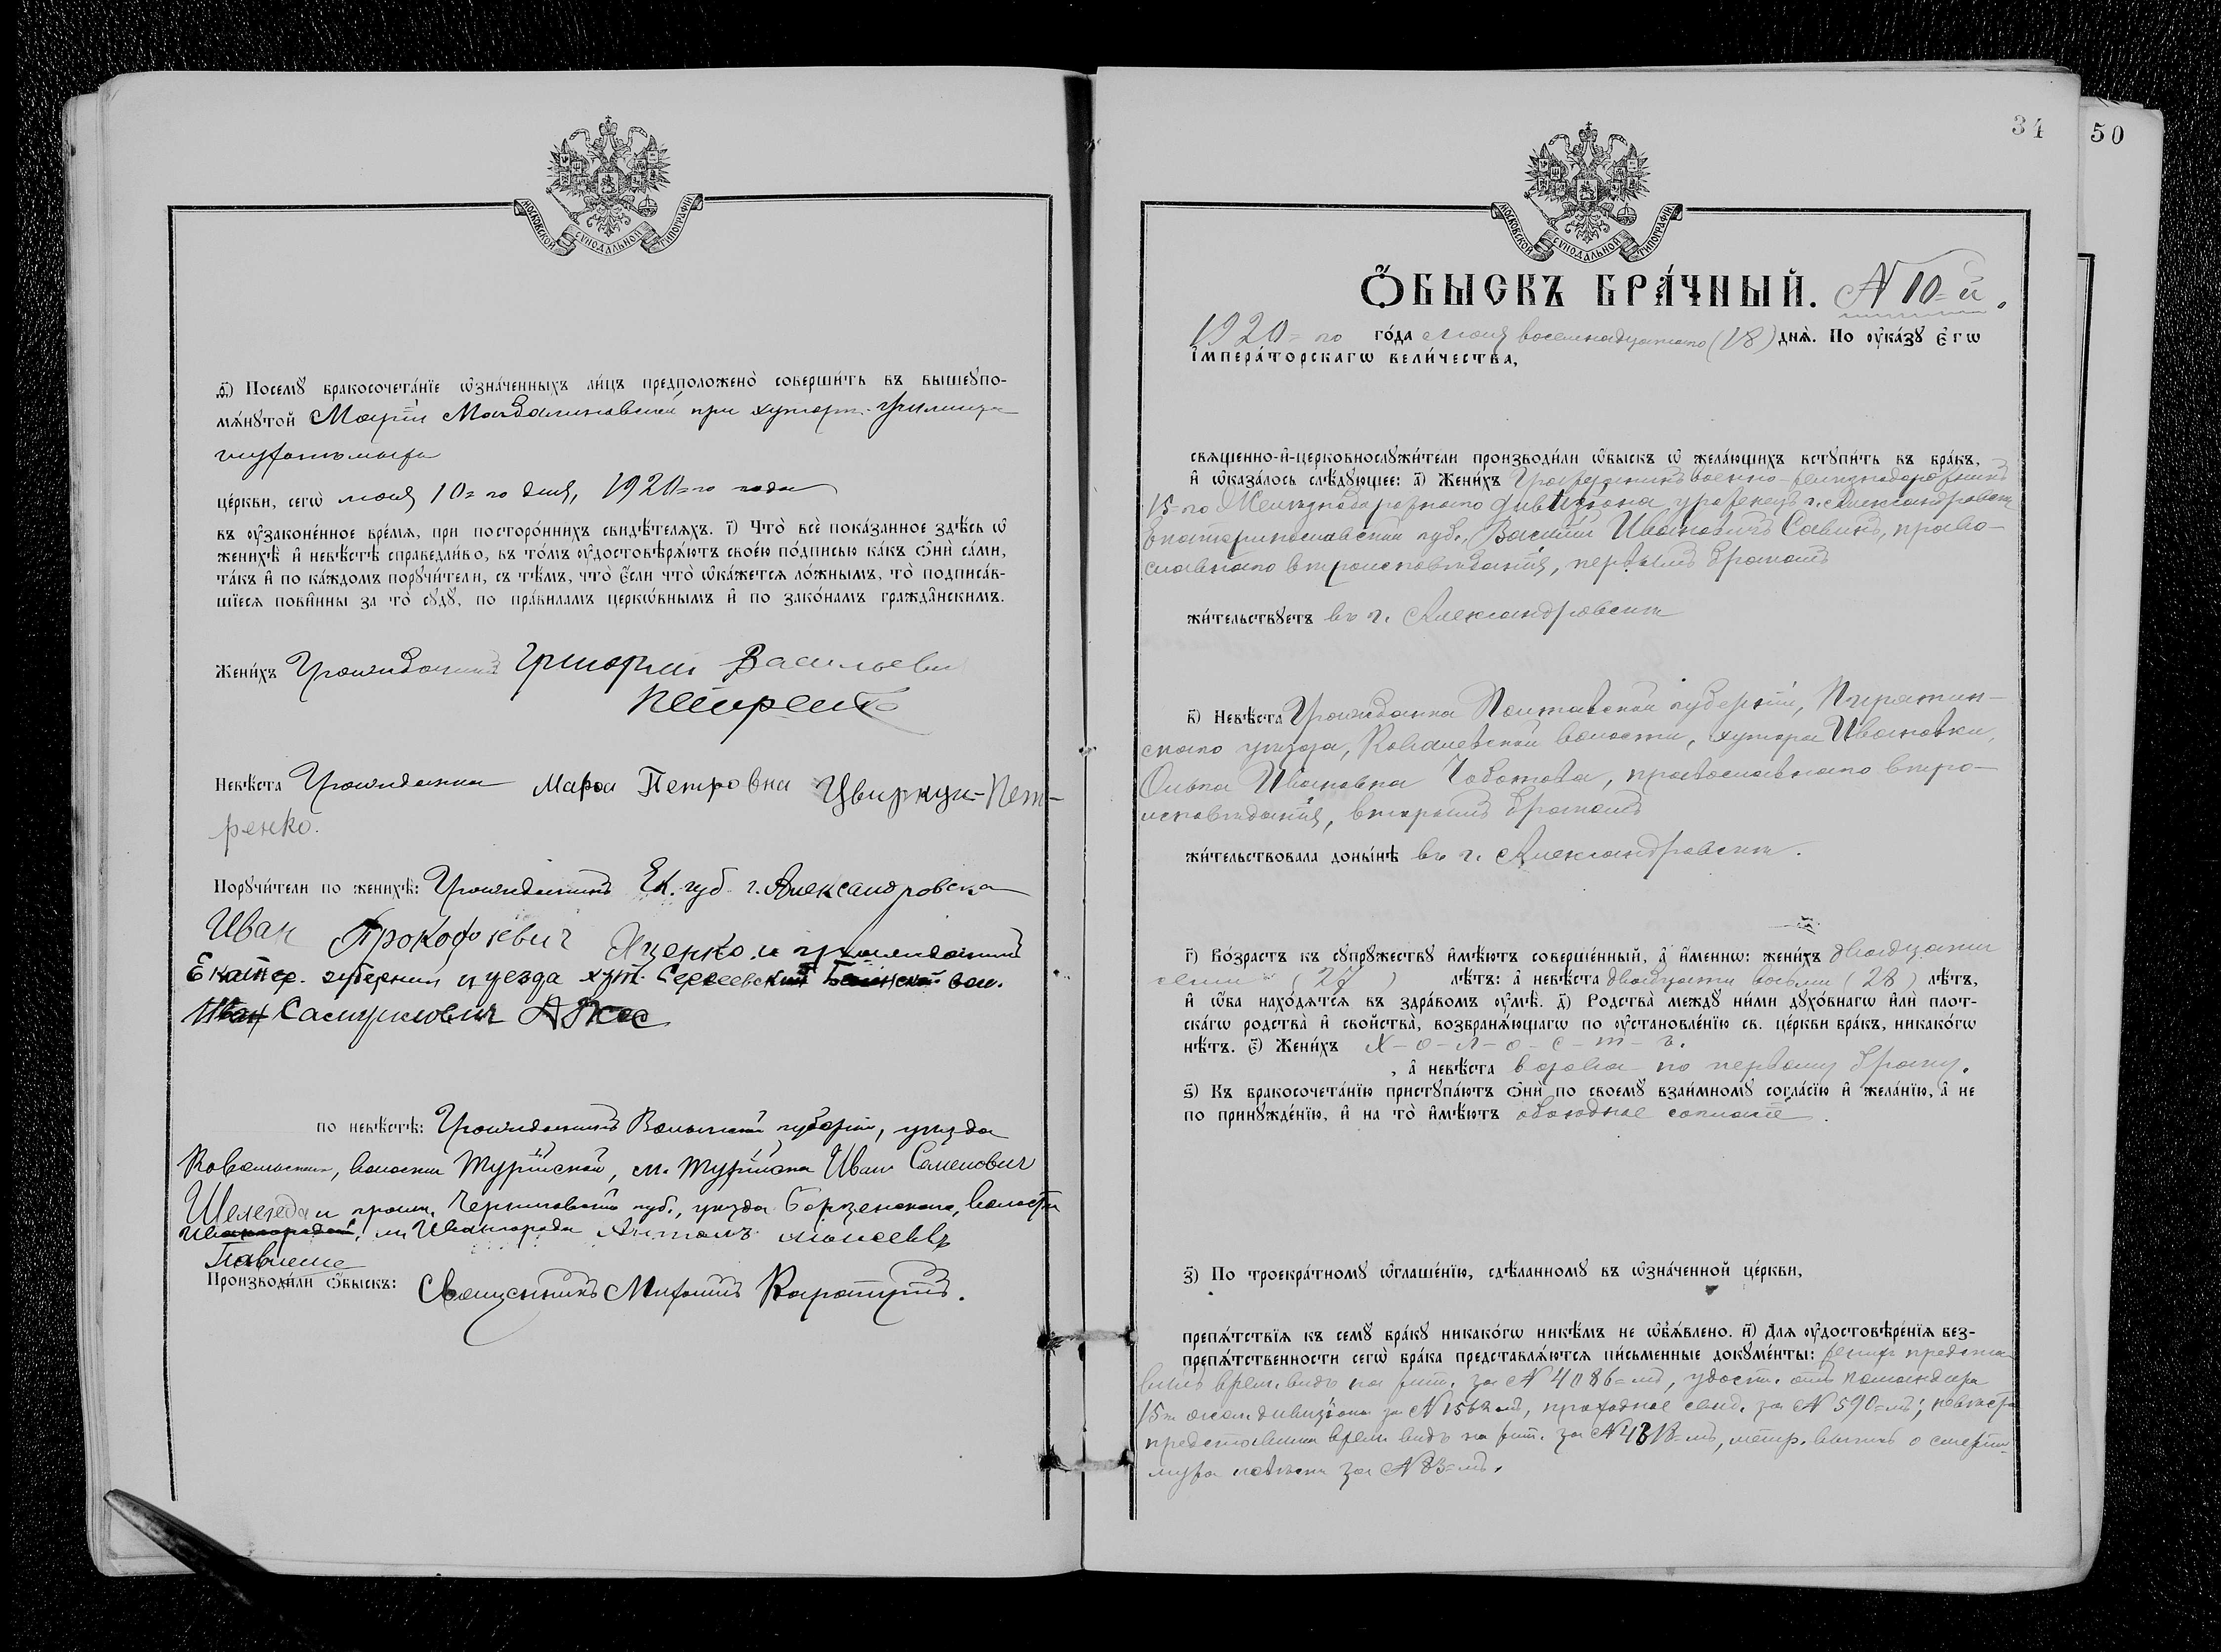 МОСКОВСКОЙ СѴНОДАЛЬНОЙ ТИПОГРАФІИ
д҃і) Посемꙋ̀ бракосочета́нїе ѡ҆зна́ченныхъ ли́цъ предположено̀ соверши́ть въ вышеꙋпо-
мѧ́нꙋтой Маріи Магдалиновской при хуторѣ
це́ркви, сегѡ̀ 10=го дня, 1920=го года
въ ᲂу҆зако́ненное вре́мѧ, при посторо́ннихъ свидѣ́телѧхъ. і҃) Что̀ всѐ пока́занное здѣ́сь ѡ҆
женихѣ̀ и҆ невѣ́стѣ справедли́во, въ то́мъ ᲂу҆достовѣрѧ́ютъ свое́ю по́дписью ка́къ ѻ҆нѝ са́ми,
та́къ и҆ по ка́ждомъ порꙋчи́тели, съ тѣ́мъ, что̀ є҆́сли что̀ ѡ҆ка́жетсѧ ло́жнымъ, то̀ подписа́в-
шїесѧ пови́нны за то̀ сꙋдꙋ̀, по пра́виламъ церкѡ́внымъ и҆ по зако́намъ гражда́нскимъ.
Жени́хъ Гражданинъ Григорий Васильевич
Петренко
Невѣ́ста Гражданка Марфа Петровна Цвиркун-Пет-
ренко.
Порꙋчи́тели по женихѣ̀: Гражданинъ Ек. губ. г. Александровска
Иван Прокофиевич Яценко и гражданинъ
Екатер. губернии и уезда хут. Сергеевский вол.
Иван Самуилович
по невѣ́стѣ: Гражданинъ Волынской губерніи, уѣзда
Ковельскаго, волости Турійской, м. Турійска Иван Семенович
Шелегеда и гражд. Черниговской губ., уѣзда Борзенскаго, волости
м. Ивангорода Антонъ Моисеевъ
Павленко
Производи́ли ѻ҆́быскъ: Священникъ Михаилъ Каратупъ.
34
50
МОСКОВСКОЙ СѴНОДАЛЬНОЙ ТИПОГРАФІИ
Ѻ҆́БЫСКЪ БРА́ЧНЫЙ. № 10=й.
1920=го го́да восемнадцатаго (18) днѧ̀. По ᲂу҆ка́зꙋ Є҆гѡ̀
І҆МПЕРА́ТОРСКАГѠ ВЕЛИ́ЧЕСТВА,
свѧщенно-и҆-церковнослꙋжи́тели производи́ли ѡ҆́быскъ ѡ҆ жела́ющихъ встꙋпи́ть въ бра́къ,
и҆ ѡ҆каза́лось слѣ́дꙋющее: а҃) Жени́хъ Гражданинъ военно-желѣзнодорожникъ
15=го Желѣзнодорожнаго дивизіона, уроженецъ г. Александровска
Екатеринославской губ., Василій Ивановичъ Савинъ, право-
славнаго вѣроисповѣданія, первымъ бракомъ
жи́тельствꙋетъ въ г. Александровскѣ
в҃) Невѣ́ста Гражданка Полтавской губерніи, Пирятин-
скаго уѣзда, Ковалевской волости, хутора Ивановки,
Ольга Ивановна Чоботова, православнаго вѣро-
исповѣданія, вторымъ бракомъ
жи́тельствовала доны́нѣ въ г. Александровскѣ.
г҃) Во́зрастъ къ сꙋпрꙋ́жествꙋ и҆мѣ́ютъ соверше́нный, а҆ и҆́меннѡ: жени́хъ двадцати
семи (27) лѣ́тъ: а҆ невѣ́ста двадцати восьми (28) лѣ́тъ,
и҆ ѡ҆́ба нахо́дѧтсѧ въ здра́вомъ ᲂу҆мѣ̀. д҃) Родства̀ междꙋ̀ ни́ми дꙋхо́внагѡ и҆лѝ плот-
ска́гѡ родства̀ и҆ сво́йства̀, возбранѧ́ющагѡ по ᲂу҆становле́нїю св. це́ркви бра́къ, никако́гѡ
нѣ́тъ. є҃) Жени́хъ х-о-л-о-с-т-ъ.
, а҆ невѣ́ста вдова по первому браку.
ѕ҃) Къ бракосочета́нїю пристꙋпа́ютъ ѻ҆нѝ по своемꙋ̀ взаи́мномꙋ согла́сїю и҆ жела́нїю, а҆ не
по принꙋжде́нїю, и҆ на то̀ и҆мѣ́ютъ обоюдное согласіе.
з҃) По троекра́тномꙋ ѡ҆глаше́нїю, сдѣ́ланномꙋ въ ѡ҆зна́ченной це́ркви,
препѧ́тствїѧ къ семꙋ̀ бра́кꙋ никако́гѡ никѣ́мъ не ѡ҆б̾ѧ́влено. и҃) Для ᲂу҆достовѣре́нїѧ без-
препѧ́тственности сегѡ̀ бра́ка представлѧ́ютсѧ пи́сьменные докꙋме́нты: женихъ предста-
вилъ врем. видъ на жит. за № 4086=мъ, удост. отъ командира
15го дивизіона за № 1562=мъ, проходное свид. за № 590=мъ; невѣста
представила врем. видъ на жит. за № =мъ, метр. выпись о смерти
мужа за № 83=мъ.